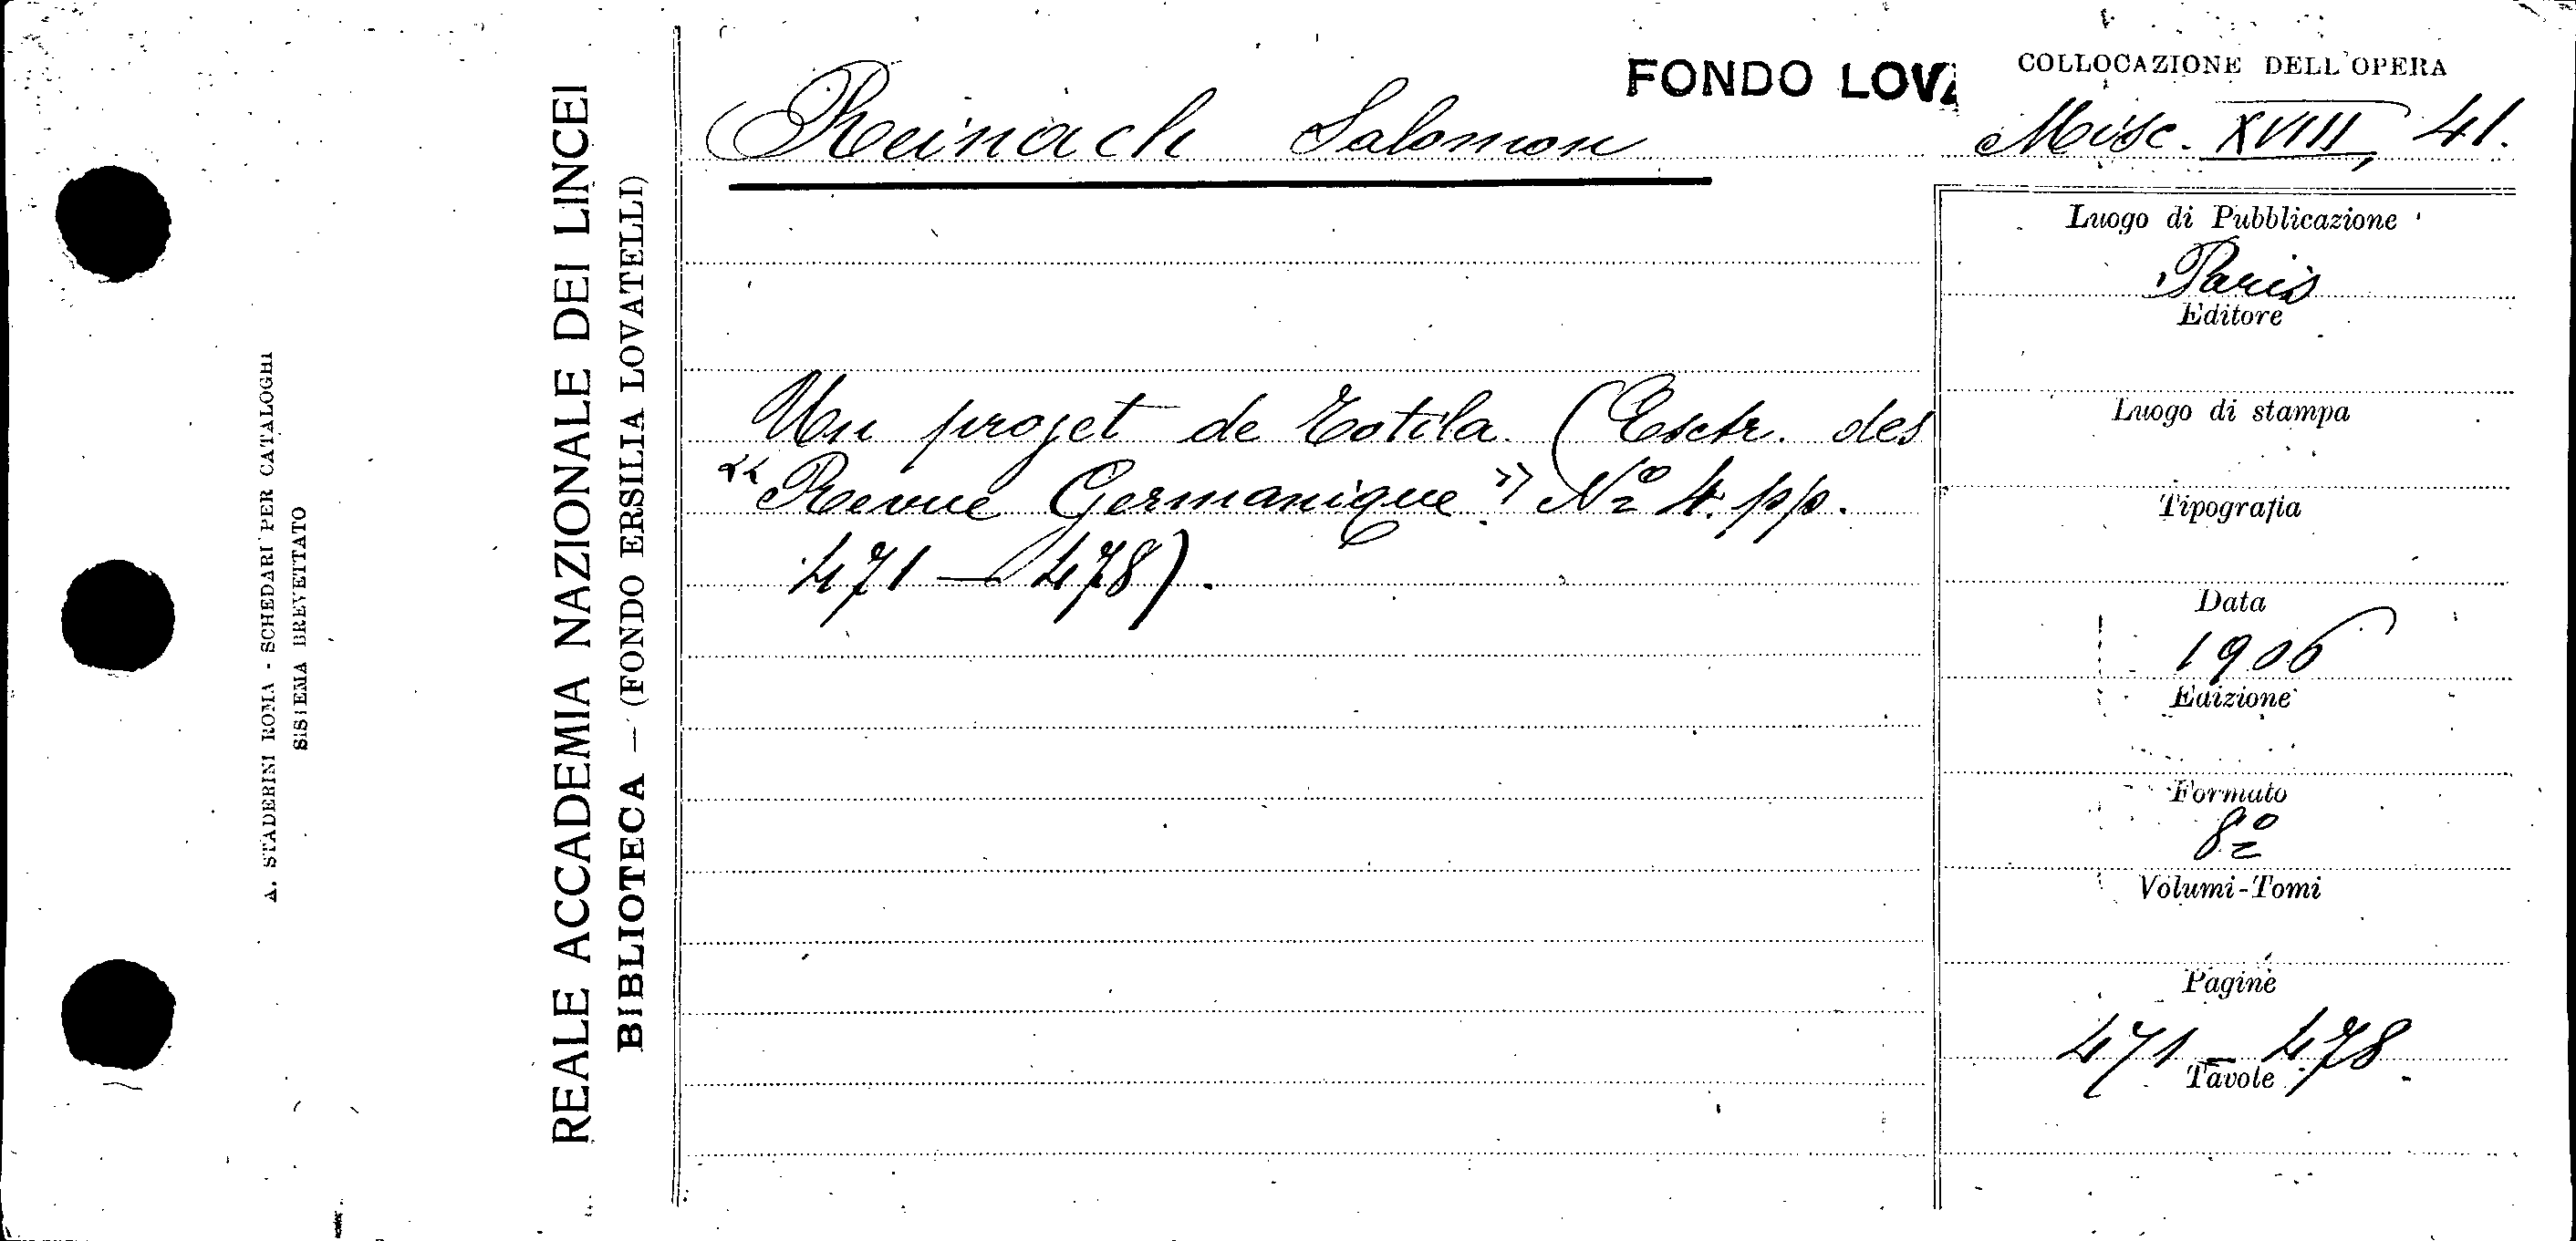 A. STADERINI ROMA - SCHEDARI PER CATALOGHI
SISTEMA BREVETTATO
REALE ACCADEMIA NAZIONALE DEI LINCEI
BIBLIOTECA — (FONDO ERSILIA LOVATELLI)
FONDO LOVA
Reinach Salomon
Un projet de Totila (Esctr. des
"Revue Germanique." Nº 4. pp.
471 — 478).
COLLOCAZIONE DELL'OPERA
Misc. XVIII, 41.
Luogo di Pubblicazione
Paris
Editore
Luogo di stampa
Tipografia
Data
1906
Edizione
Formato
8º
Volumi-Tomi
Pagine
471 - 478
Tavole